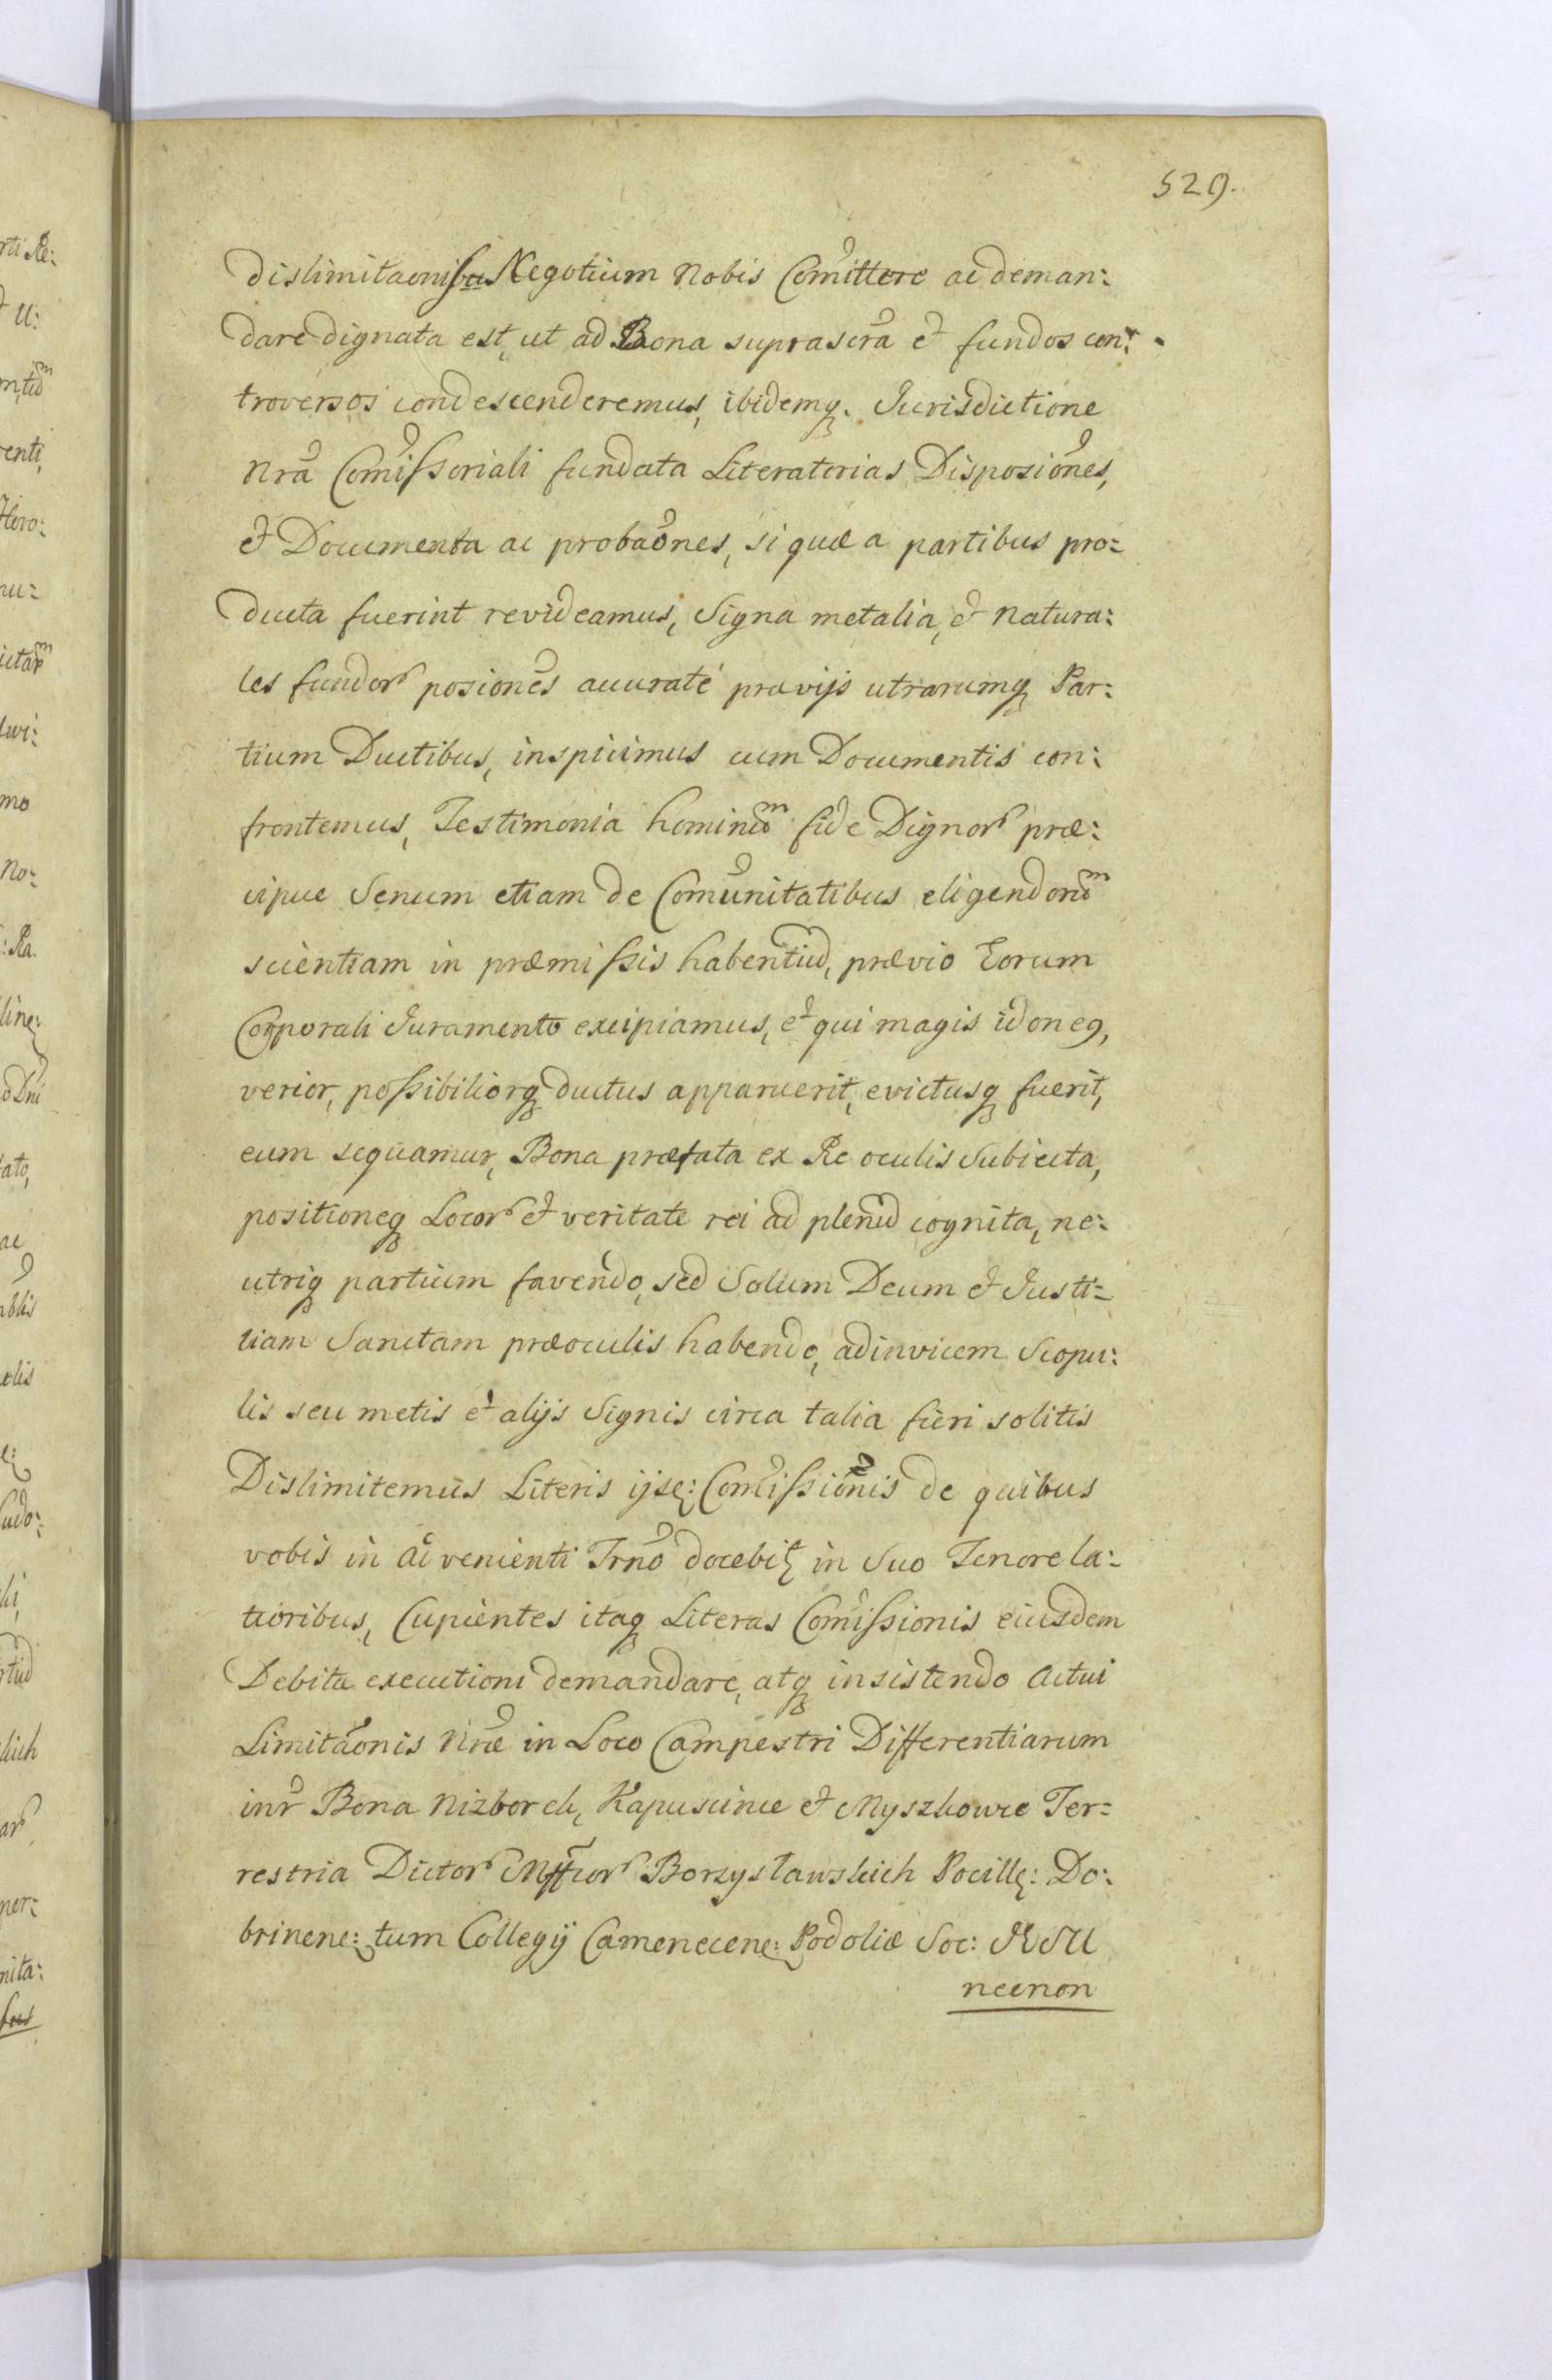 529.
dislimitaonisbus Negotium Nobis Comittere ac deman:
dare dignata est, ut ad Bona suprascra et fundos con:
troversos condescenderemus, ibidemq. Jurisdictione
Nra Comissoriali fundata Literatorias Disposiones,
et Documenta ac probaones, si quæ a partibus pro:
ducta fuerint revideamus, Signa metalia, et Natura:
les fundor posiones accuraté prævijs utrarumq Par:
tium Ductibus, inspicimus cum Documentis con:
frontemus, Testimonia hominum fide Dignor præ:
cipue Senum etiam de Comunitatibus eligendorum
scientiam in præmissis habentiu, prævio Eorum
Corporali Juramento excipiamus, et qui magis idoneq,
verior, possibiliorq ductus apparuerit, evictusq fuerit,
eum sequamur, Bona præfata ex Re oculis Subiecta,
positioneq Locor et veritate rei ad plenu cognita, ne:
utriq partium favendo, sed Solum Deum et Justi:
tiam Sanctam præoculis habendo, adinvicem Scopu:
lis seu metis et alijs Signis circa talia fieri solitis
Dislimitemus Literis ijse: Comissionis de quibus
vobis in Advenienti Trno docebit in Suo Tenore la:
tioribus, Cupientes itaq Literas Comissionis eiusdem
Debitæ executioni demandare, atq insistendo Actui
Limitaonis Nræ in Loco Campestri Differentiarum
inr Bona Nizborek, Kapuscince et Myszkowce Ter:
restria Dictor Mffcor Borzysławskich Pocille: Do:
brinene: tum Collegij Camenecene: Podoliæ Soc: JESU
necnon